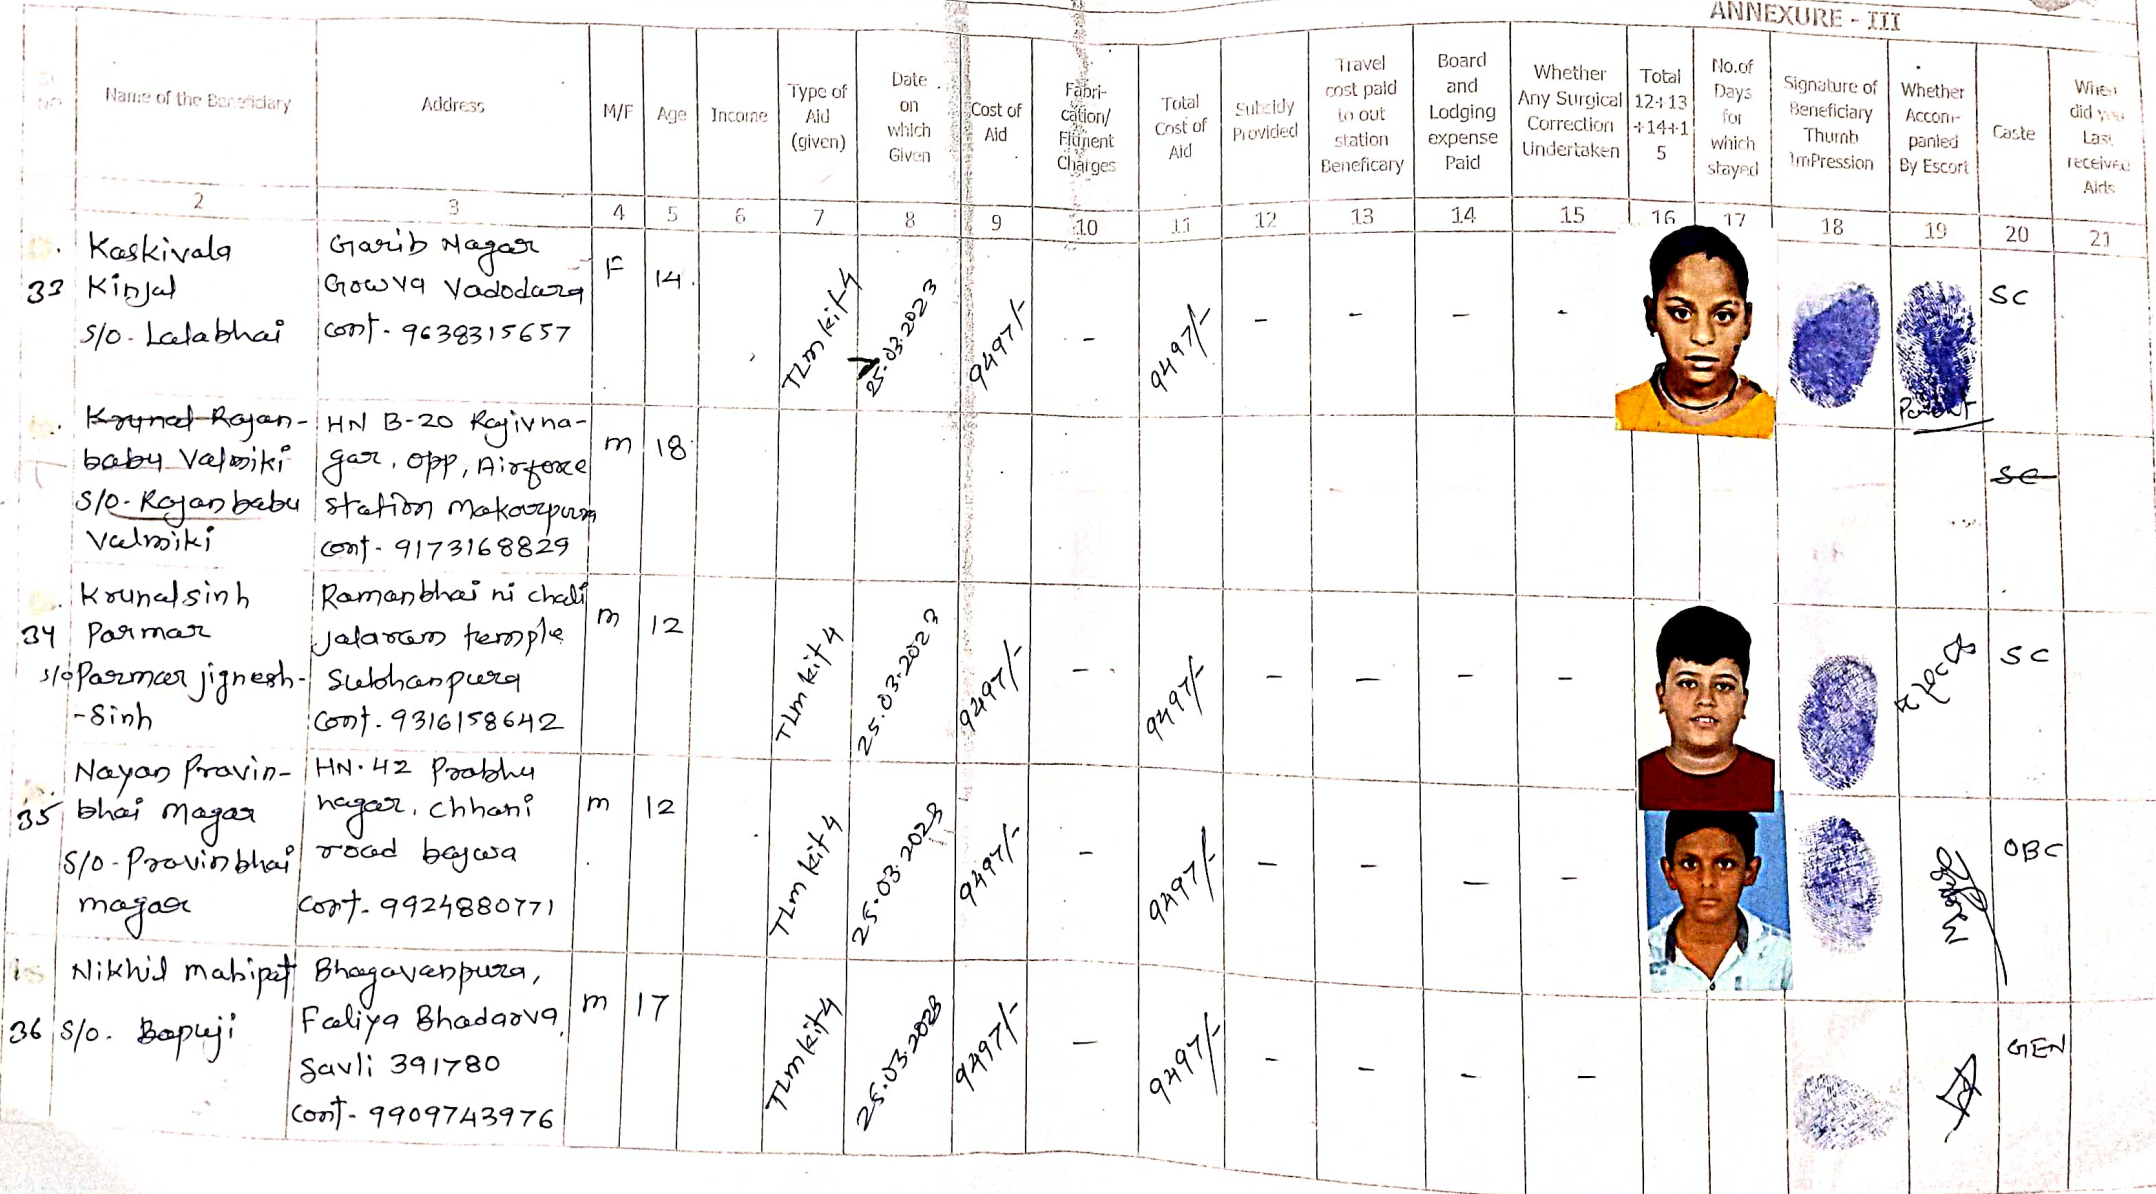 ANNEXURE - III
Sl NO
Name of the Beneficiary
Address
M/F
Age
Income
Type of Aid (given)
Date on which Given
Cost of Aid
Fabri-cation/ Fitment Charges
Total Cost of Aid
Subsidy Provided
Travel cost paid to out station Beneficary
Board and Lodging expense Paid
Whether Any Surgical Correction Undertaken
Total 12+13 +14+1 5
No.of Days for which stayed
Signature of Beneficiary Thumb ImPression
Whether Accom-panied By Escort
Caste
When did you Last received Aids
2 3 4 5 6 7 8 9 10 11 12 13 14 15 16 17 18 19 20 21
33
Kaskivala
Kinjal
S/O - Lalabhai
Garib Nagar
Gowva Vadodara
Cont - 9638315657
F
14
TLM kit 4
25.03.2023
9497/-
-
9497/-
-
-
-
-
Parent
SC
Krunal Rajan-
babu Valmiki
S/O - Rajanbabu
Valmiki
HN B-20 Rajivna-
gar, opp, Airforce
station Makarpura
Cont - 9173168829
M
18
SC
34
Krunalsinh
Parmar
S/o Parmar jignesh-
-Sinh
Ramanbhai ni chali
Jalaram temple
Subhanpura
Cont. 9316158642
M
12
TLM kit 4
25.03.2023
9497/-
-
9497/-
-
-
-
-
SC
35
Nayan Pravin-
bhai Magar
S/O - Pravinbhai
magar
HN. 42 Prabhu
nagar, Chhani
road bajwa
Cont - 9924880771
M
12
TLM kit 4
25.03.2023
9497/-
-
9497/-
-
-
-
-
OBC
36
Nikhil mahipat
S/O. Bapuji
Bhagavanpura,
Faliya Bhadarva,
Savli 391780
Cont - 9909743976
M
17
TLM kit 4
25.03.2023
9497/-
-
9497/-
-
-
-
-
GEN